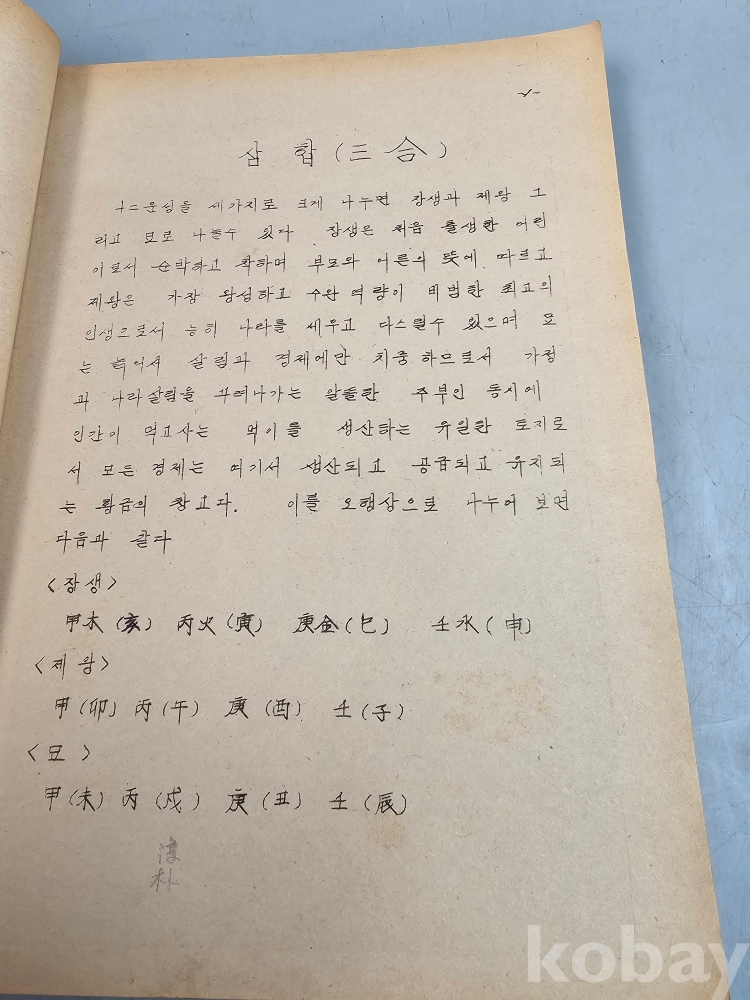 삼합(三合)
十二운성을 세가지로 크게 나누면 장생과 제왕 그
리고 묘로 나눌수 있다 장생은 처음 출생한 어린
이로서 순박하고 착하며 부모와 어른의 뜻에 따르고
제왕은 가장 왕성하고 수완 역량이 비범한 최고의
인생으로서 능히 나라를 세우고 다스릴수 있으며 묘
는 늙어서 살림과 경제에만 치중하므로서 가정
과 나라살림을 꾸려나가는 알뜰한 주부인 동시에
인간이 먹고사는 먹이를 생산하는 유일한 토지로
서 모든 경제는 여기서 생산되고 공급되고 유지되
는 황금의 창고다. 이를 오행상으로 나누어 보면
다음과 같다
<장생>
甲木(亥) 丙火(寅) 庚金(巳) 壬水(申)
<제왕>
甲(卯) 丙(午) 庚(酉) 壬(子)
<묘>
甲(未) 丙(戌) 庚(丑) 壬(辰)
淳
朴
kobay